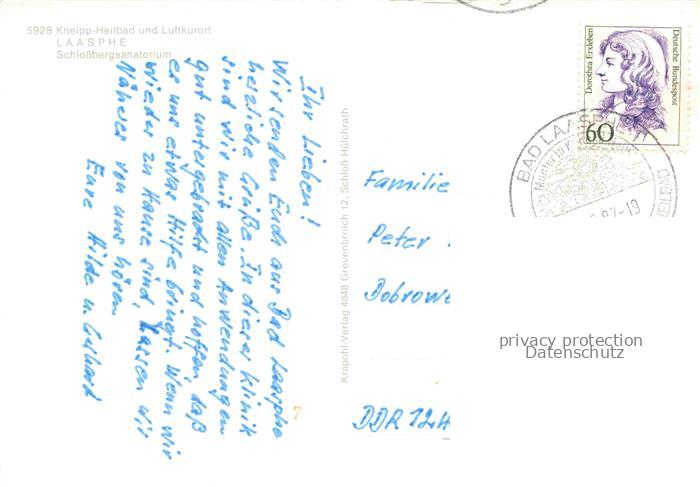 5928 Kneipp-Heilbad und Luftkurort
LAASPHE
Schloßbergsanatorium
Ihr Lieben!
Wir senden Euch aus Bad Laasphe
herzliche Grüße. In dieser Klinik
sind wir mit allen Anwendungen
gut untergebracht und hoffen, daß
es uns etwas Hilfe bringt. Wenn wir
wieder zu Hause sind, lassen wir
Näheres von uns hören
Eure Hilde u. Gerhard
Krapohl-Verlag 4048 Grevenbroich 12, Schloß Hülchrath
Familie
Peter
Dobrowe
DDR 124
Dorothea Erxleben
Deutsche Bundespost
60
BAD LAASPHE
87-19
privacy protection
Datenschutz